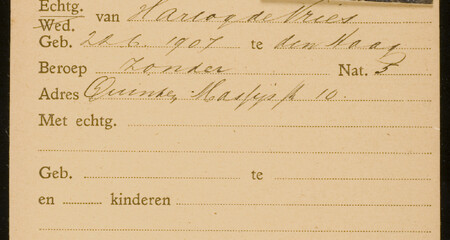 Echtg.
Wed. van Hartog de Vries
Geb. 20.6.1907 te den Haag
Beroep zonder Nat.
Adres Quinten Massijs st 10.
Met echtg.
Geb. te
en kinderen